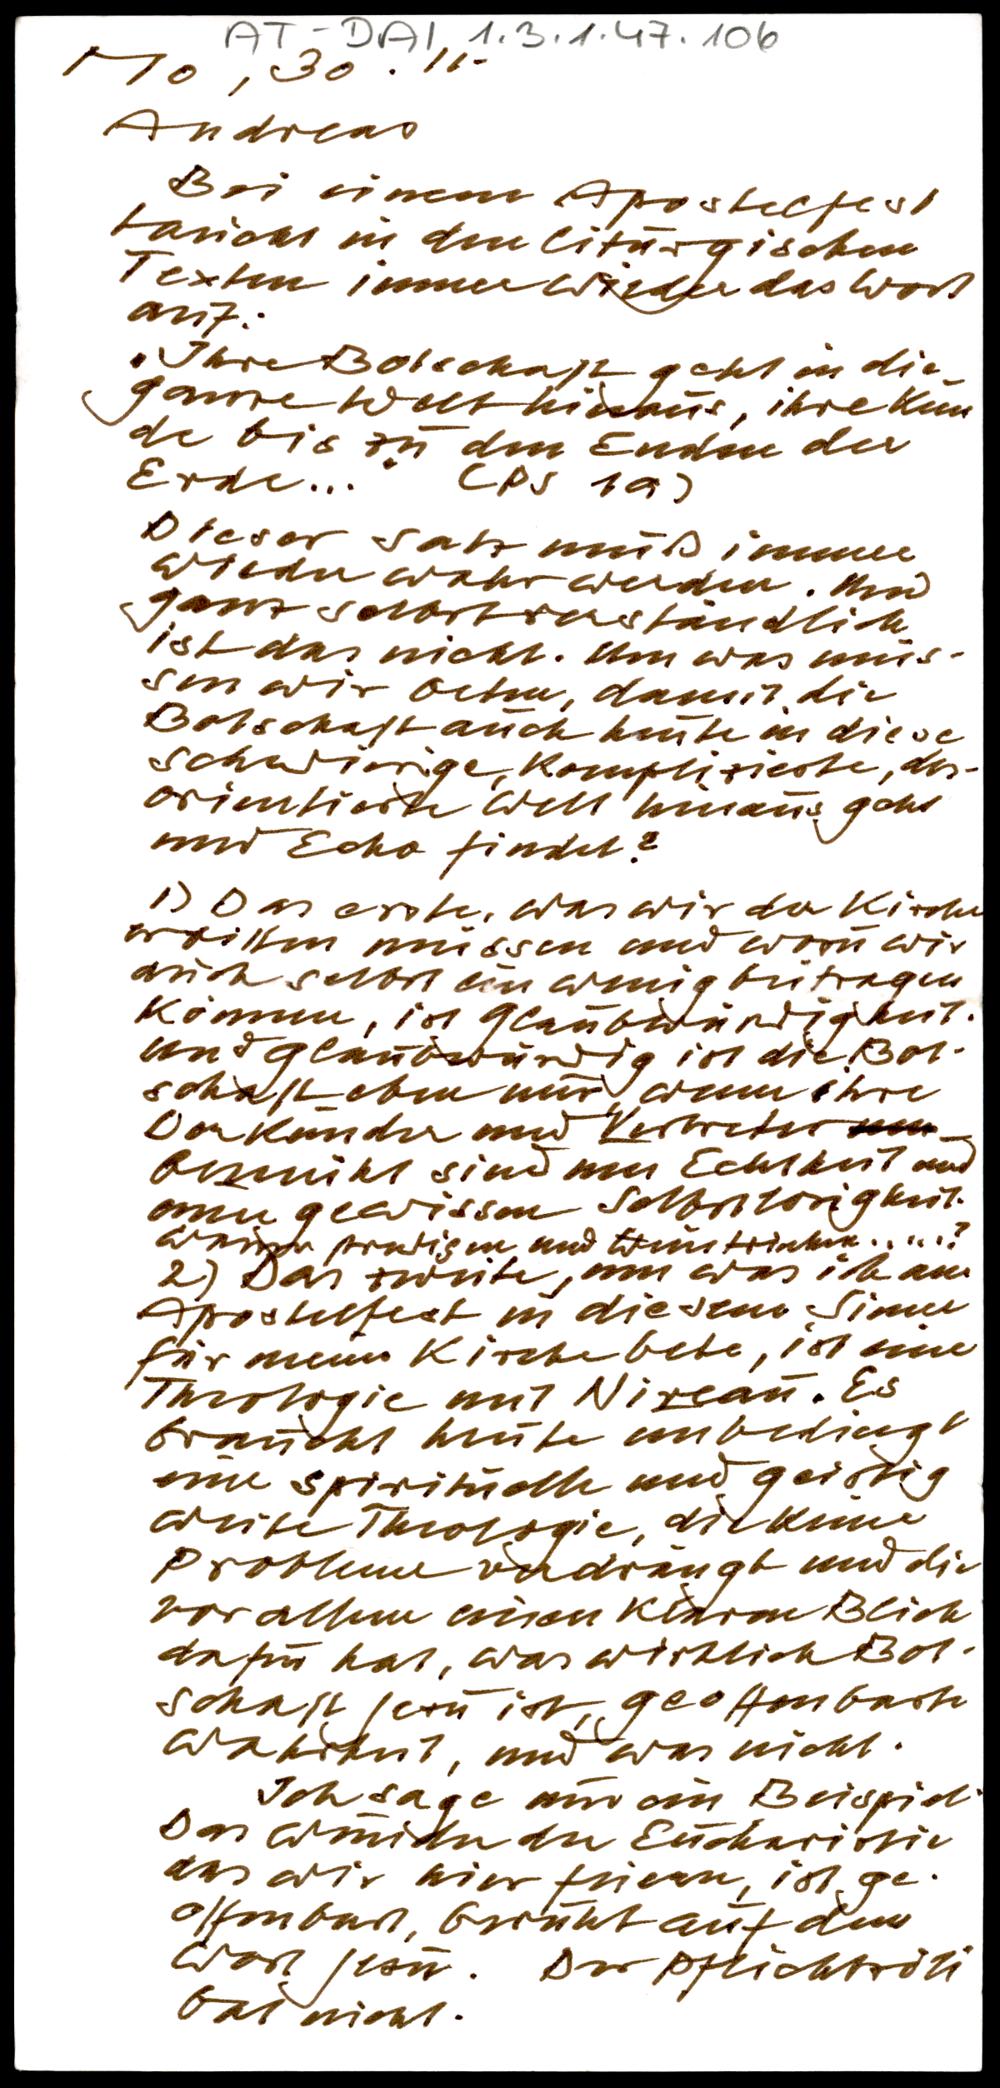 AT-DAI 1.3.1.47.106
Mo, 30. 11.
Andreas
Bei einem Apostelfest
taucht in den liturgischen
Texten immer wieder das Wort
auf:
"Ihre Botschaft geht in die
ganze Welt hinaus, ihre Kun
de bis zu den Enden der
Erde..." (Ps 19)
Dieser Satz muß immer
wieder wahr werden. Und
ganz selbstverständlich
ist das nicht. Um was müs-
sen wir beten, damit die
Botschaft auch heute in diese
schwierige, komplizierte, des-
orientierte Welt hinaus geht
und Echo findet?
1) Das erste, was wir der Kirche
wünschen müssen und wozu wir
auch selbst ein wenig beitragen
können, ist Glaubwürdigkeit.
Und glaubwürdig ist die Bot-
schaft eben nur, wenn ihre
Verkünder und Vertreter
bemüht sind um Echtheit und
einer gewissen Selbstlosigkeit.
Wasser predigen und Wein trinken.....?
2) Das zweite, um was ich am
Apostelfest in diesem Sinne
für meine Kirche bete, ist eine
Theologie mit Niveau. Es
braucht heute unbedingt
eine spirituelle und geistig
weite Theologie, die keine
Probleme verdrängt und die
vor allem einen klaren Blick
dafür hat, was wirklich Bot-
schaft Jesu ist, geoffenbarte
Wahrheit, und was nicht.
Ich sage nur ein Beispiel:
Das Wunder der Eucharistie
das wir hier feiern, ist ge-
offenbart, beruht auf dem
Wort Jesu. Der Pflichtzöli
bat nicht.